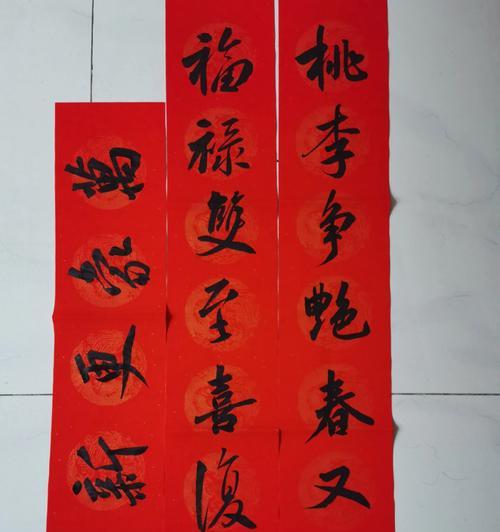 桃李争艳春又
福禄雙至喜復
萬象更新